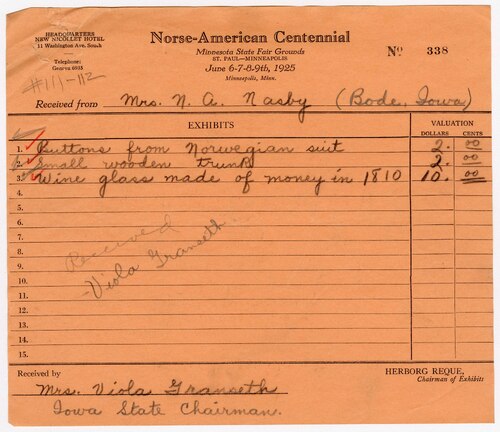 HEADQUARTERS
NEW NICOLLET HOTEL
11 Washington Ave. South
Telephone:
Geneva 6935
Norse-American Centennial
Minnesota State Fair Grounds
ST. PAUL—MINNEAPOLIS
June 6-7-8-9th, 1925
Minneapolis, Minn.
No 338
#111-112
Received from Mrs. N. A. Nasby (Bode, Iowa)
EXHIBITS VALUATION
DOLLARS CENTS
1. Buttons from Norwegian suit 2. 00
2. Small wooden trunk 2. 00
3. Wine glass made of money in 1810 10. 00
4.
5.
6.
7.
8.
9.
10.
11.
12.
13.
14.
15.
Received
Viola Granseth
Received by
HERBORG REQUE,
Chairman of Exhibits
Mrs. Viola Granseth
Iowa State Chairman.